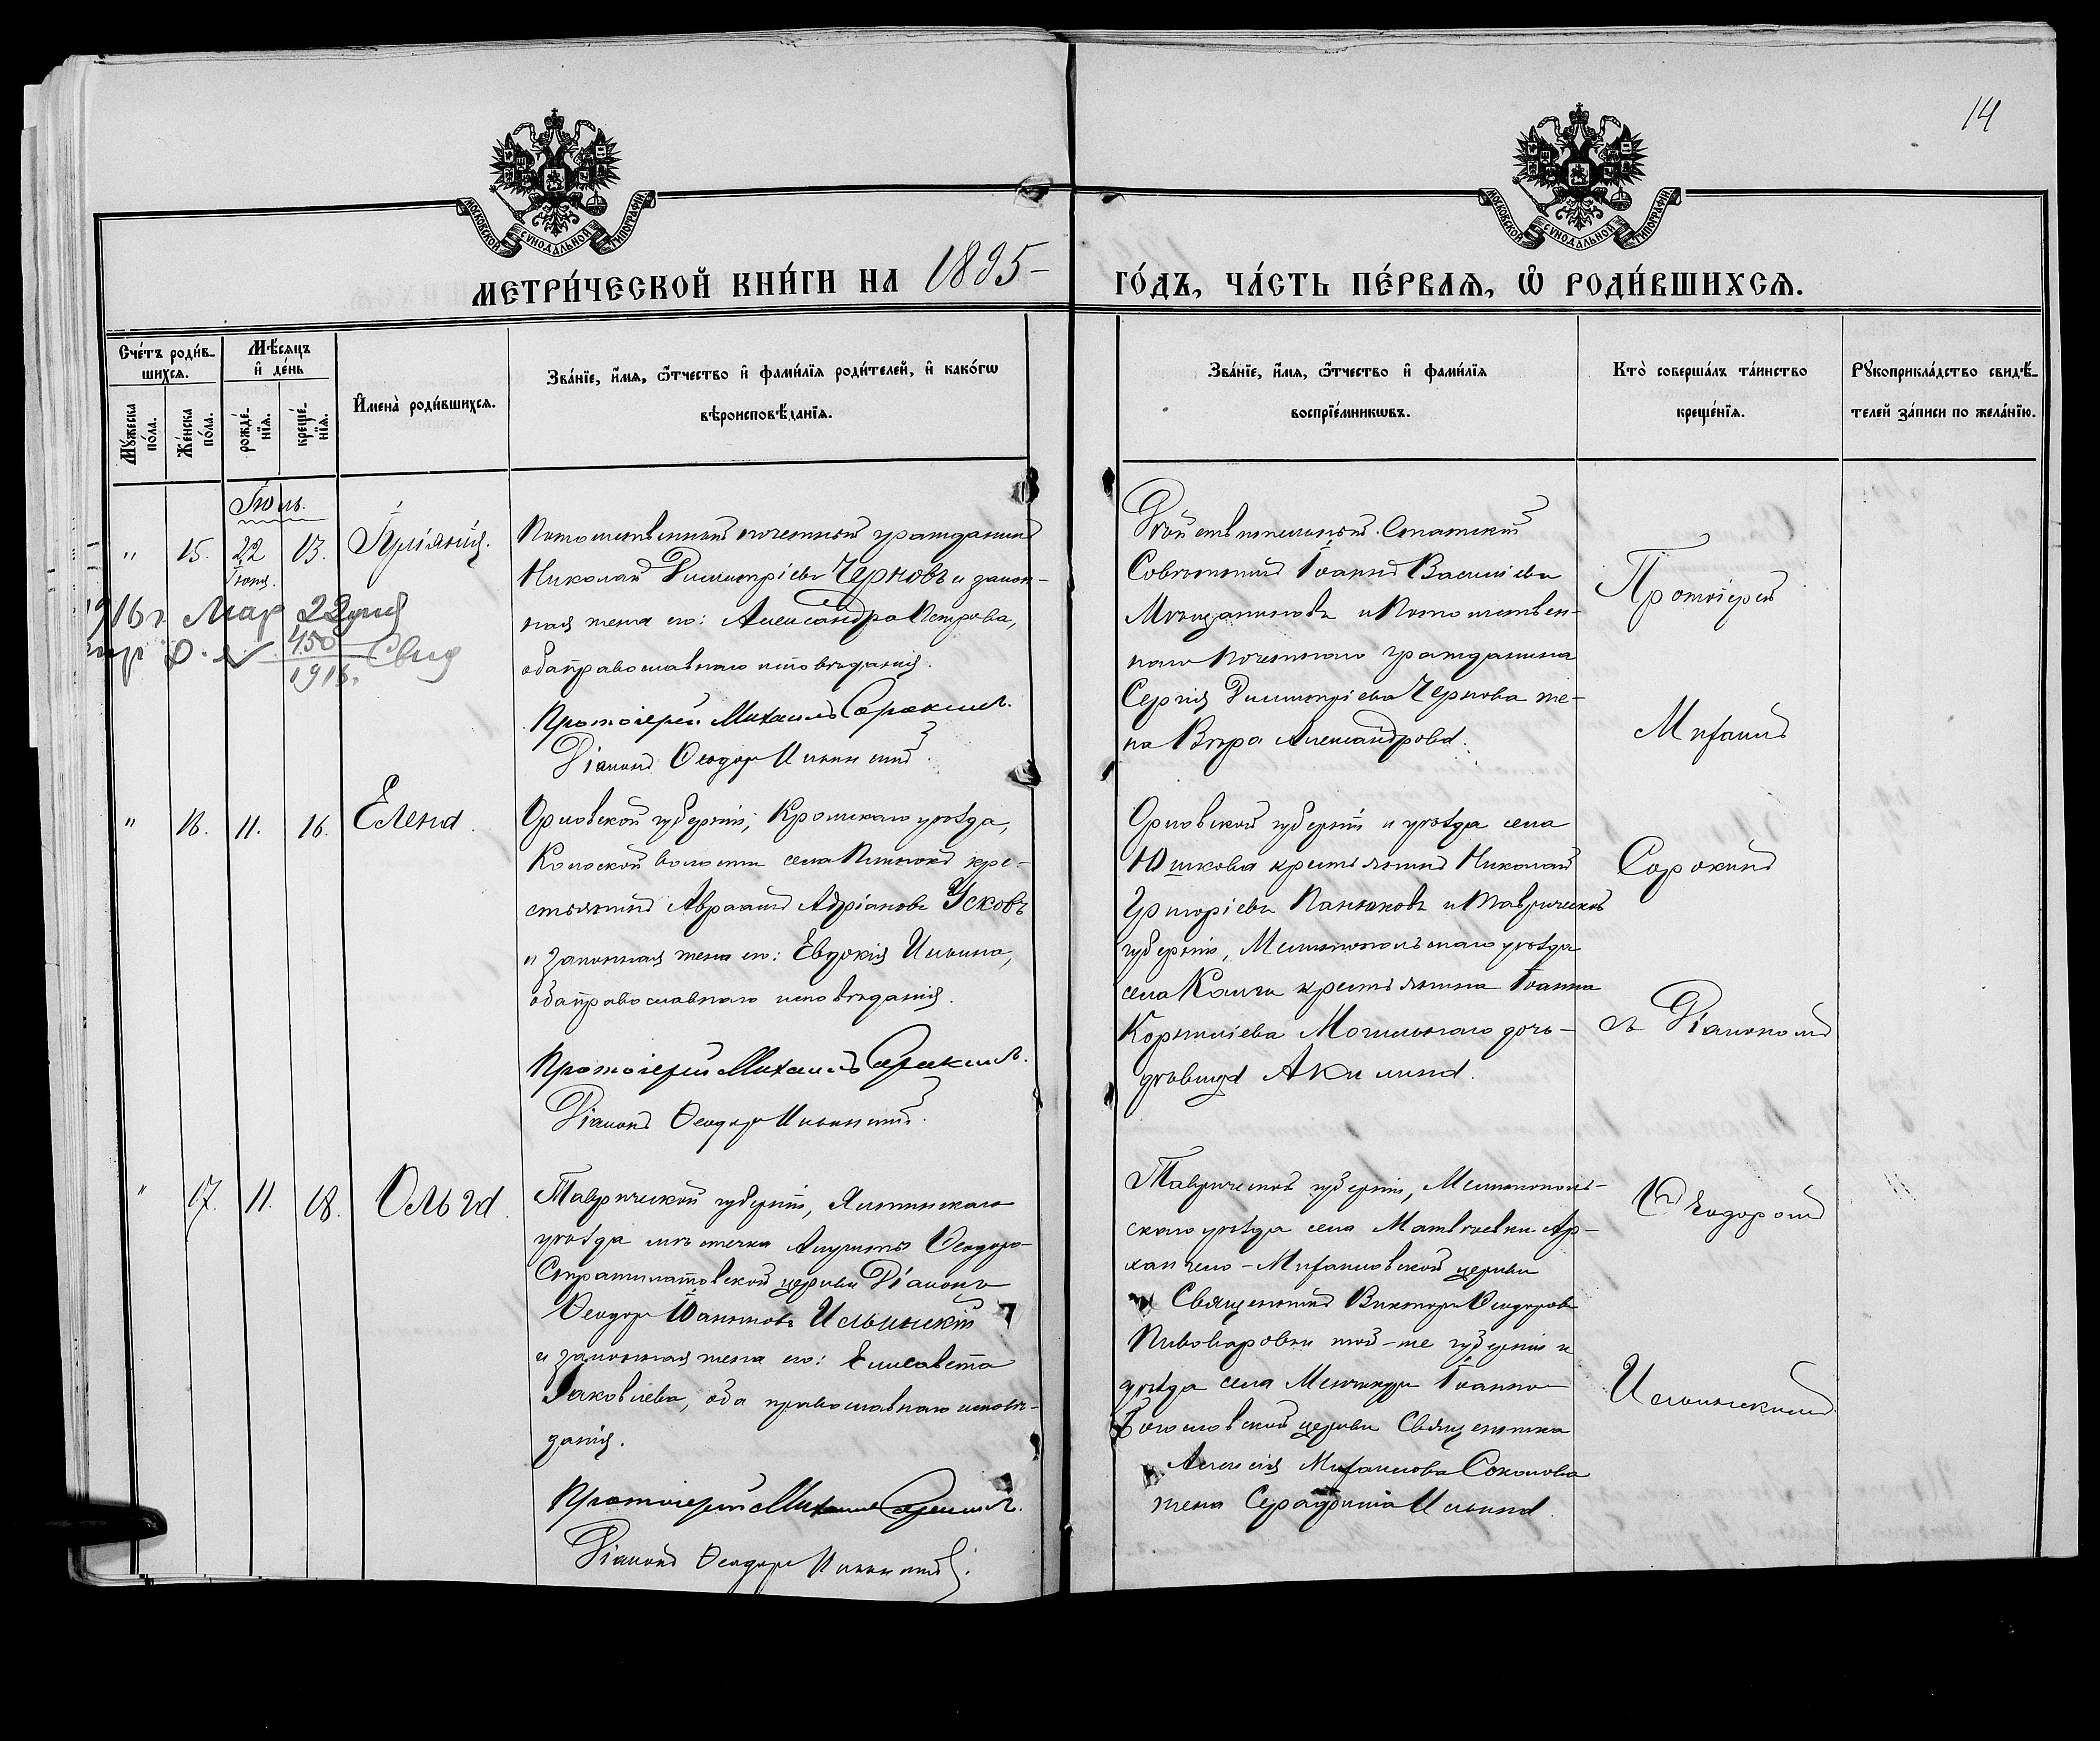 14
МОСКОВСКОЙ СѴНОДАЛЬНОЙ ТИПОГРАФІИ
МОСКОВСКОЙ СѴНОДАЛЬНОЙ ТИПОГРАФІИ
МЕТРИ́ЧЕСКОЙ КНИ́ГИ НА 1895 ГО́ДЪ, ЧА́СТЬ ПЕ́РВАѦ, Ѽ РОДИ́ВШИХСѦ.
Сче́тъ роди́в-
шихсѧ.
Мꙋжеска по́ла.
Же́нска по́ла.
Мѣ́сѧцъ
и҆ де́нь
рожде́-
нїѧ.
креще́-
нїѧ.
И҆мена̀ роди́вшихсѧ.
Зва́нїе, и҆́мѧ, ѻ҆́тчество и҆ фами́лїѧ роди́телей, и҆ како́гѡ
вѣроисповѣ́данїѧ.
Зва́нїе, и҆́мѧ, ѻ҆́тчество и҆ фами́лїѧ
воспрїе́мникѡвъ.
Кто̀ соверша́лъ та́инство
креще́нїѧ.
Рꙋкоприкла́дство свидѣ́-
телей за́писи по жела́нїю.
Іюль.
" 15. 22 13. Іуліанія.
Іюня.
1916 г Мар 22 дня
450
1916. Свид
Потомственный почетный гражданинъ
Николай Димитріевъ Черновъ и закон-
ная жена его: Александра Петрова,
оба православнаго исповѣданія.
Протоіерей Михаилъ Сорокинъ.
Діаконъ Ѳеодоръ Ильинскій.
Дѣйствительный Статскій
Совѣтникъ Іоаннъ Васильевъ
Мѣщаниновъ и Потомствен-
наго Почетнаго гражданина
Сергія Димитріева Чернова же-
на Вѣра Александрова.
Протоіерей
Михаилъ
" 16. 11. 16. Елена.
Орловской губерніи, Кромскаго уѣзда,
волости села крe-
стьянинъ Авраамъ Адріановъ Усковъ
и законная жена его: Евдокія Ильина,
оба православнаго исповѣданія.
Протоіерей Михаилъ Сорокинъ.
Діаконъ Ѳеодоръ Ильинскій.
Орловской губерніи и уѣзда села
Юшкова крестьянинъ Николай
Григоріевъ Панюковъ и Таврической
губерніи, Мелитопольскаго уѣзда
села крестьянина Іоанна
Корниліева Могильнаго дочь-
дѣвица Акилина.
Сорокинъ
съ Діакономъ
" 17. 11. 18. Ольга.
Таврической губерніи, Ялтинскаго
уѣзда мѣстечка Алушты Ѳеодоро-
Стратилатовской церкви Діаконъ
Ѳеодоръ Іоанновъ Ильинскій
и законная жена его: Елисавета
Іаковлева, оба православнаго исповѣ-
данія.
Протоіерей Михаилъ Сорокинъ.
Діаконъ Ѳеодоръ Ильинскій.
Таврической губерніи, Мелитополь-
скаго уѣзда села Матвѣевки Ар-
хангело-Михаиловской церкви
Священникъ Викторъ Ѳеодоровъ
той-же губерніи и
уѣзда села Менчикуры Іоанно-
Богословской церкви Священника
Алексія Михаилова Соколова
жена Серафима Ильина.
Ѳеодоромъ
Ильинскимъ.